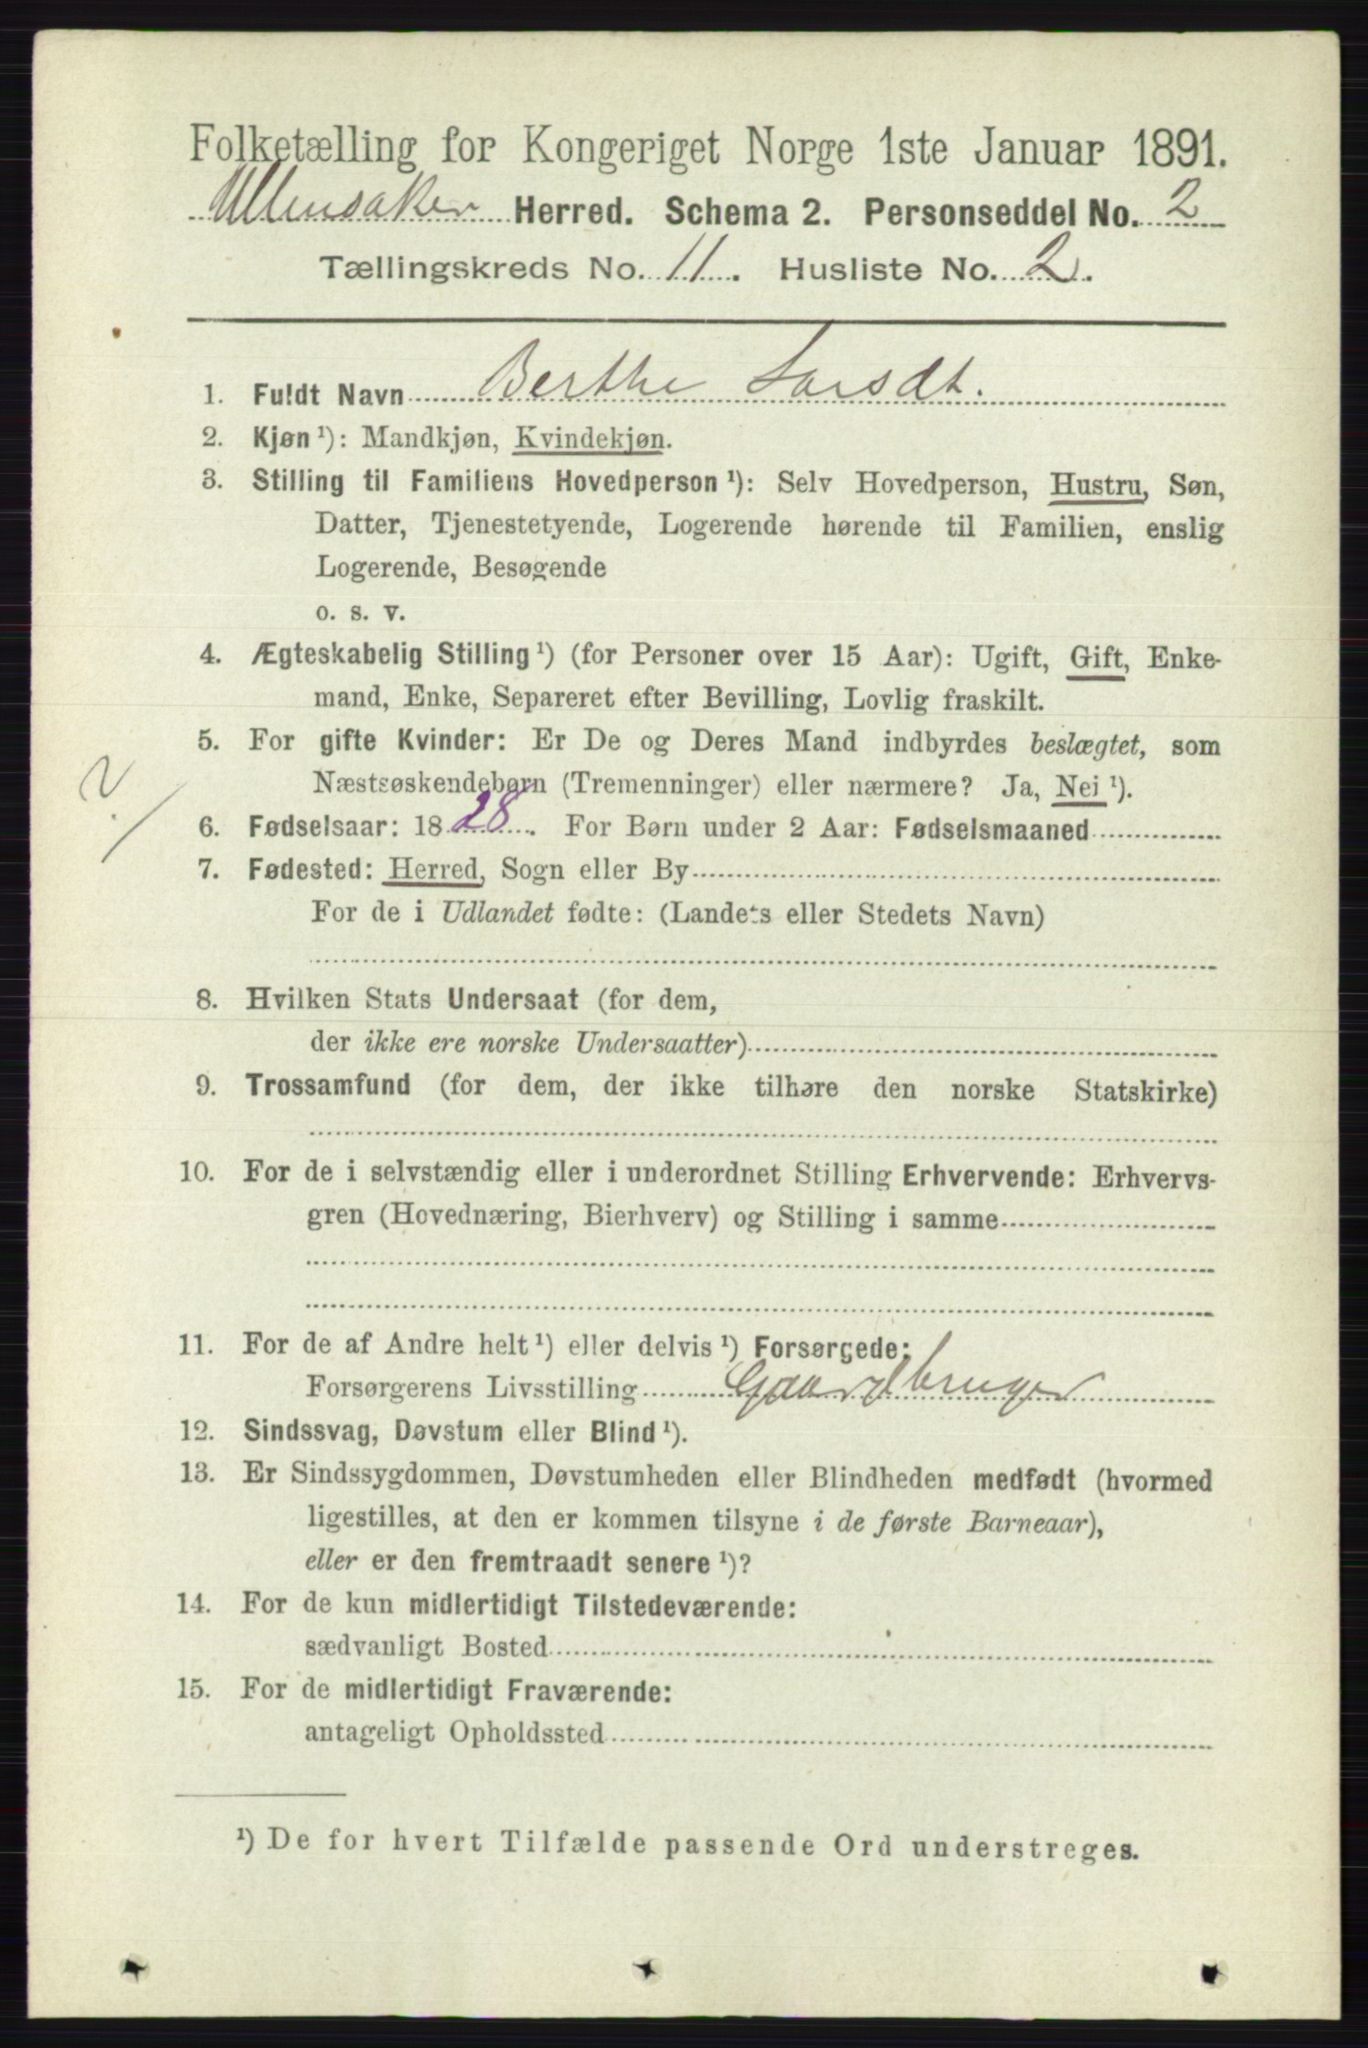 Folketælling for Kongeriget Norge 1ste Januar 1891.
Ullensaker Herred. Schema 2. Personseddel No. 2
Tællingskreds No. 11. Husliste No. 2.
1. Fuldt Navn Berthe Larsdt.
2. Kjøn ¹): Mandkjøn, Kvindekjøn.
3. Stilling til Familiens Hovedperson ¹): Selv Hovedperson, Hustru, Søn,
Datter, Tjenestetyende, Logerende hørende til Familien, enslig
Logerende, Besøgende
o. s. v.
4. Ægteskabelig Stilling ¹) (for Personer over 15 Aar): Ugift, Gift, Enke-
mand, Enke, Separeret efter Bevilling, Lovlig fraskilt.
5. For gifte Kvinder: Er De og Deres Mand indbyrdes beslægtet, som
Næstsøskendebørn (Tremenninger) eller nærmere? Ja, Nei ¹).
?
6. Fødselsaar: 1828. For Børn under 2 Aar: Fødselsmaaned
7. Fødested: Herred, Sogn eller By
For de i Udlandet fødte: (Landets eller Stedets Navn)
8. Hvilken Stats Undersaat (for dem,
der ikke ere norske Undersaatter)
9. Trossamfund (for dem, der ikke tilhøre den norske Statskirke)
10. For de i selvstændig eller i underordnet Stilling Erhvervende: Erhvervs-
gren (Hovednæring, Bierhverv) og Stilling i samme
11. For de af Andre helt ¹) eller delvis ¹) Forsørgede:
Forsørgerens Livsstilling Gaardbruger
12. Sindssvag, Døvstum eller Blind ¹).
13. Er Sindssygdommen, Døvstumheden eller Blindheden medfødt (hvormed
ligestilles, at den er kommen tilsyne i de første Barneaar),
eller er den fremtraadt senere ¹)?
14. For de kun midlertidigt Tilstedeværende:
sædvanligt Bosted
15. For de midlertidigt Fraværende:
antageligt Opholdssted
¹) De for hvert Tilfælde passende Ord understreges.